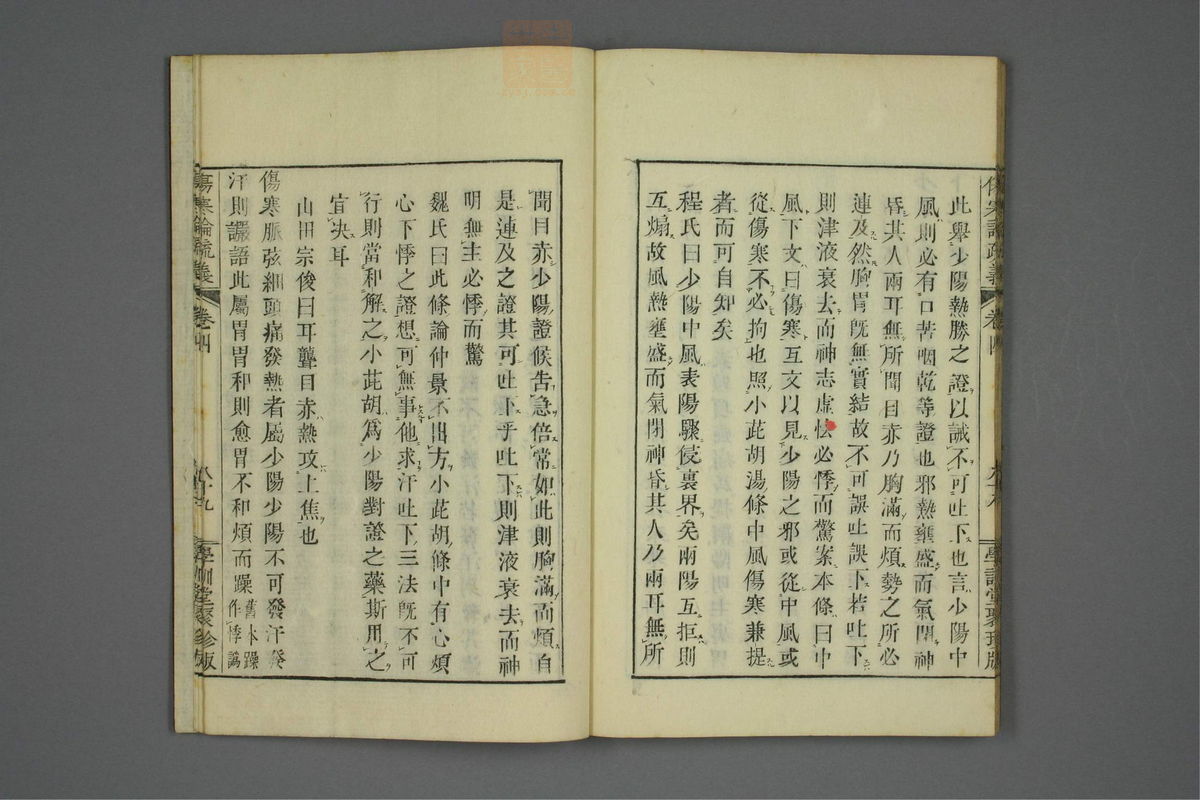 此舉少陽熱勝之證以誡不可吐下也言少陽中
風則必有口苦咽乾等證也邪熱壅盛而氣閉神
昏其人兩耳無所聞目赤乃胸滿而煩勢之所必
連及然胸胃既無實結故不可誤吐誤下若吐下
則津液衰去而神志虛怯必悸而驚案本條曰中
風下文曰傷寒互文以見少陽之邪或從中風或
從傷寒不必拘也照小茈胡湯條中風傷寒兼提
者而可自知矣
程氏曰少陽中風表陽驟侵裏界矣兩陽互拒則
互煽故風熱壅盛而氣閉神昏其人乃兩耳無所
聞目赤少陽證候告急倍常如此則胸滿而煩自
是連及之證其可吐下乎吐下則津液衰去而神
明無主必悸而驚
魏氏曰此條論仲景不出方小茈胡條中有心煩
心下悸之證想可無事他求汗吐下三法既不可
行則當和解之小茈胡爲少陽對證之藥斯用之
宜決耳
山田宗俊曰耳聾目赤熱攻上焦也
傷寒脈弦細頭痛發熱者屬少陽少陽不可發汗發
汗則讝語此屬胃胃和則愈胃不和煩而躁舊本躁作悸譌
傷寒論疏義
卷四
學訓堂聚珍版